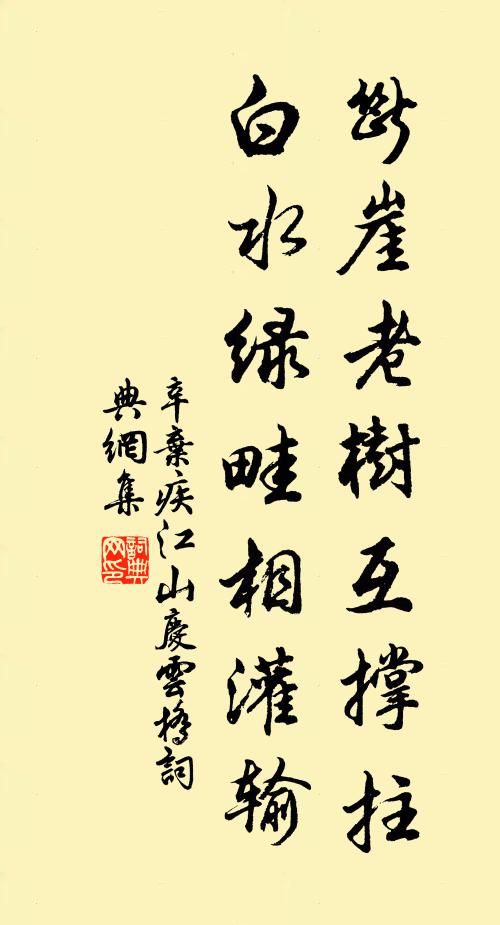 斷崖老樹互撐拄
白水緑畦相灌输
辛棄疾江山慶雲橋詞
典網集
詞典
网印